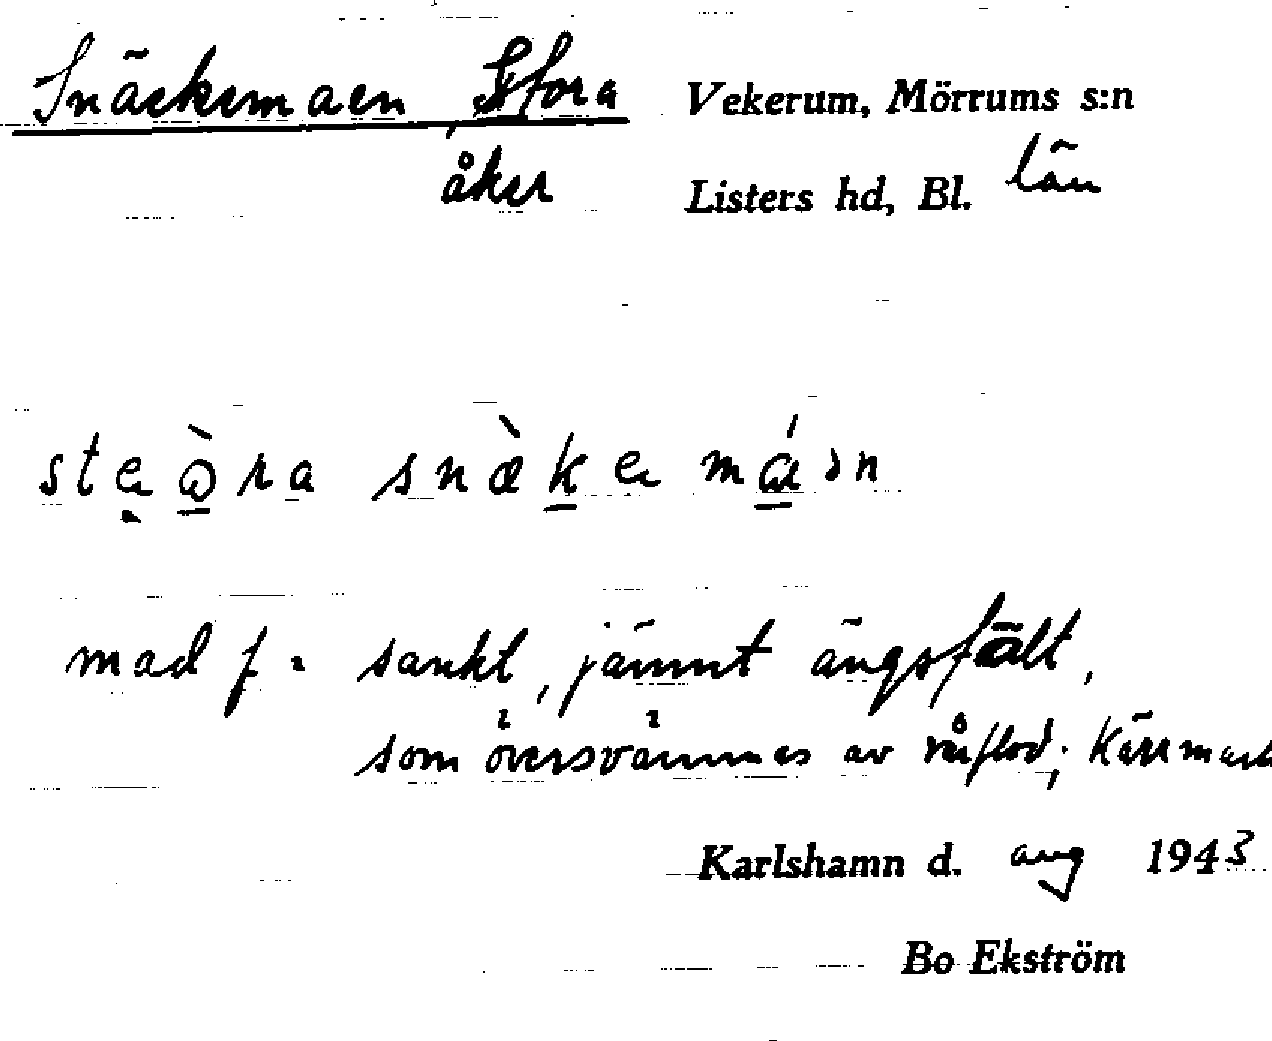 Snäckemaen, Stora Vekerum, Mörrums s:n
åker Listers hd, Bl. län
mad f. = sankt, jämnt ängsfält,
som översvämmes av vårflod; Kärrmark
Karlshamn d. aug 1943
Bo Ekström